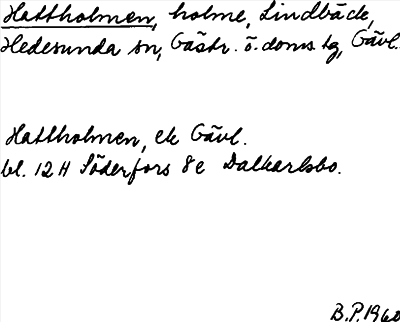 Hattholmen, holme, Lindbäck,
Hedesunda sn, Gästr. ö. doms. tg, Gävl.
Hattholmen, ek Gävl.
bl. 12 H Söderfors 8e Dalkarlsbo.
B.P. 1960